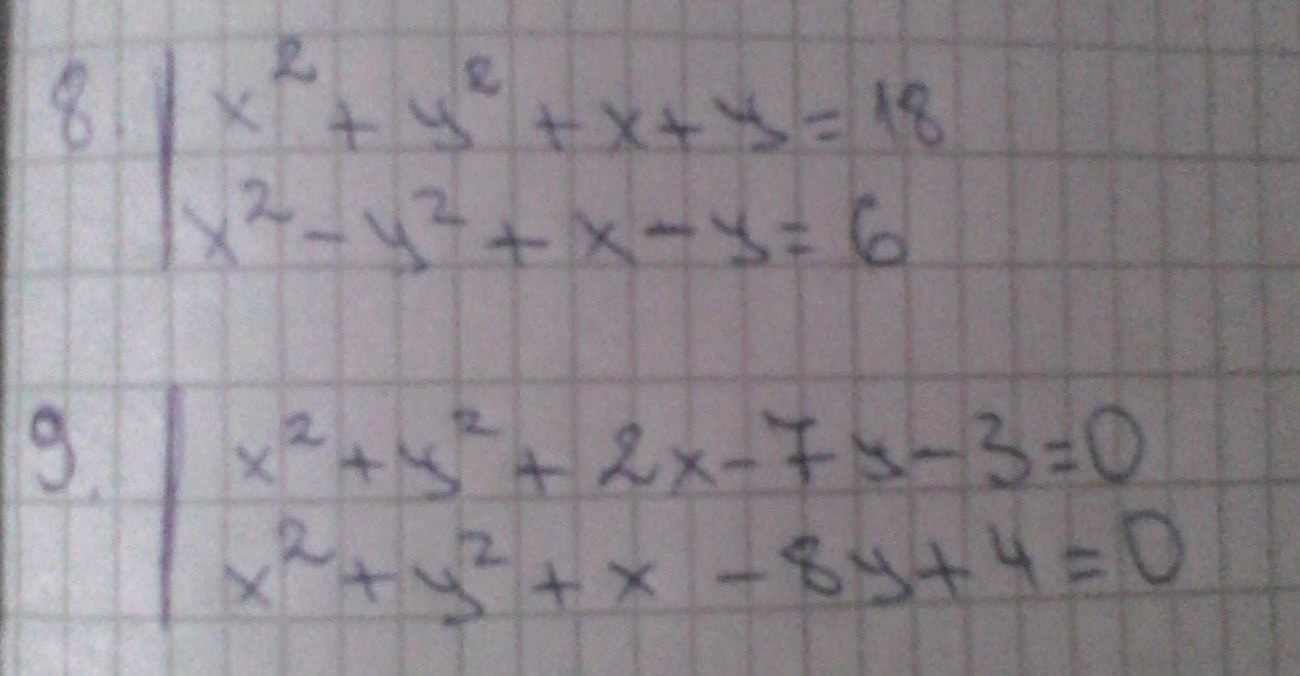 8. x² + y² + x + y = 18
x² - y² + x - y = 6
9. x² + y² + 2x - 7y - 3 = 0
x² + y² + x - 8y + 4 = 0